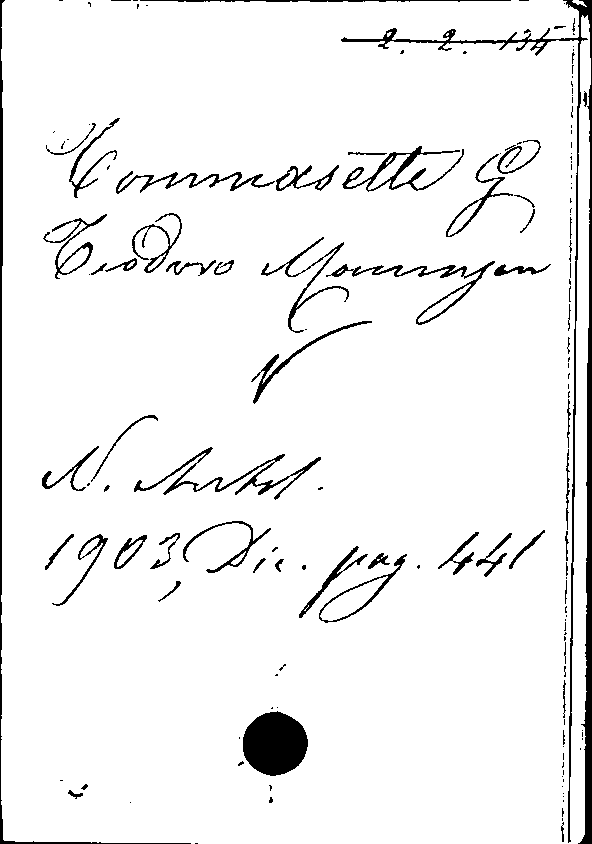 2. 2. 135
Tommasette G
Teodoro Mommsen
N. Antol.
1903, Dic. pag. 441